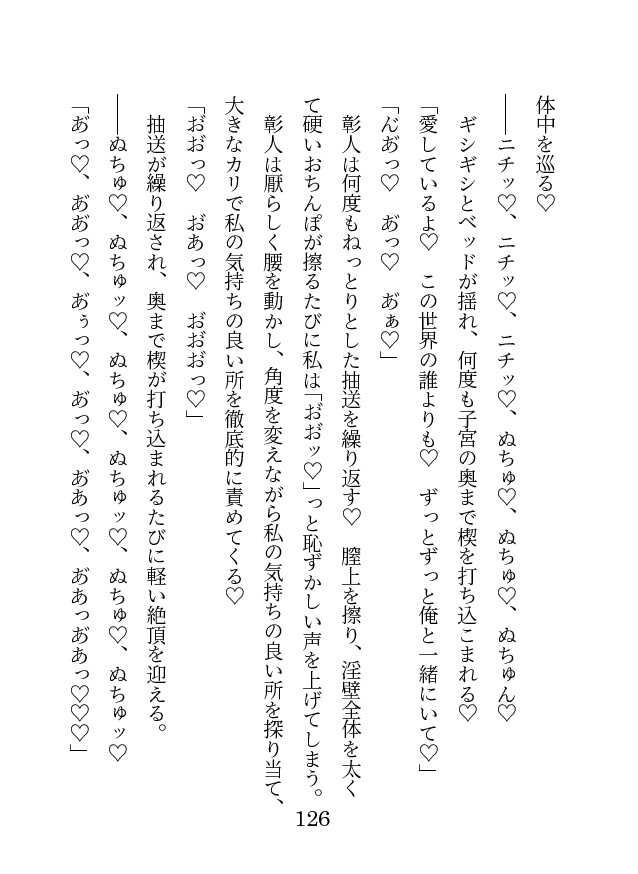 体中を巡る♡
――ニチッ♡、ニチッ♡、ニチッ♡、ぬちゅ♡、ぬちゅ♡、ぬちゅん♡
ギシギシとベッドが揺れ、何度も子宮の奥まで楔を打ち込こまれる♡
「愛しているよ♡　この世界の誰よりも♡　ずっとずっと俺と一緒にいて♡」
「ん゙あ゙っ♡　あ゙っ♡　あ゙ぁ♡」
彰人は何度もねっとりとした抽送を繰り返す♡　膣上を擦り、淫壁全体を太く
て硬いおちんぽが擦るたびに私は「お゙お゙ッ♡」っと恥ずかしい声を上げてしまう。
彰人は厭らしく腰を動かし、角度を変えながら私の気持ちの良い所を探り当て、
大きなカリで私の気持ちの良い所を徹底的に責めてくる♡
「お゙お゙っ♡　お゙あっ♡　お゙お゙お゙っ♡」
抽送が繰り返され、奥まで楔が打ち込まれるたびに軽い絶頂を迎える。
――ぬちゅ♡、ぬちゅッ♡、ぬちゅ♡、ぬちゅッ♡、ぬちゅ♡、ぬちゅッ♡
「あ゙っ♡、あ゙あ゙っ♡、あ゙ぅっ♡、あ゙っ♡、あ゙あっ♡、あ゙あっあ゙あっ♡♡♡」
126